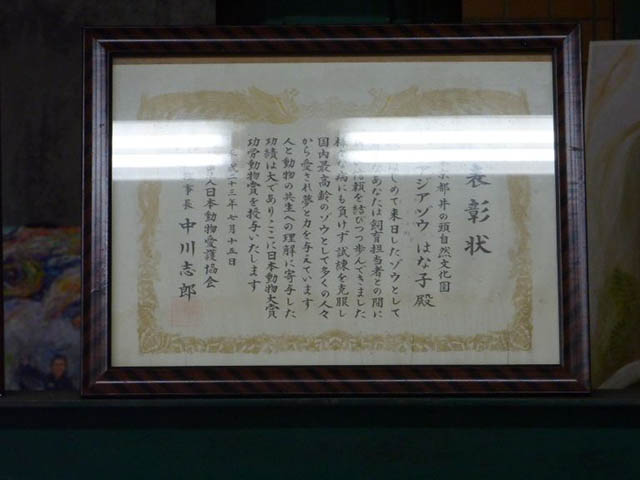 表彰状
京都井の頭自然文化園
アジアゾウ はな子殿
じめて来日したゾウとして
なあなたは飼育担当者との間に
信頼を結びつつ歩んできました
病にも負けず試練を克服し
国内最高齢のゾウとして多くの人々
から愛され夢と力を与えています
人と動物の共生への理解に寄与した
功績は大であり、ここに日本動物大賞
功労動物賞を授与いたします
二十三年七月十五日
人日本動物愛護協会
事長 中川志郎